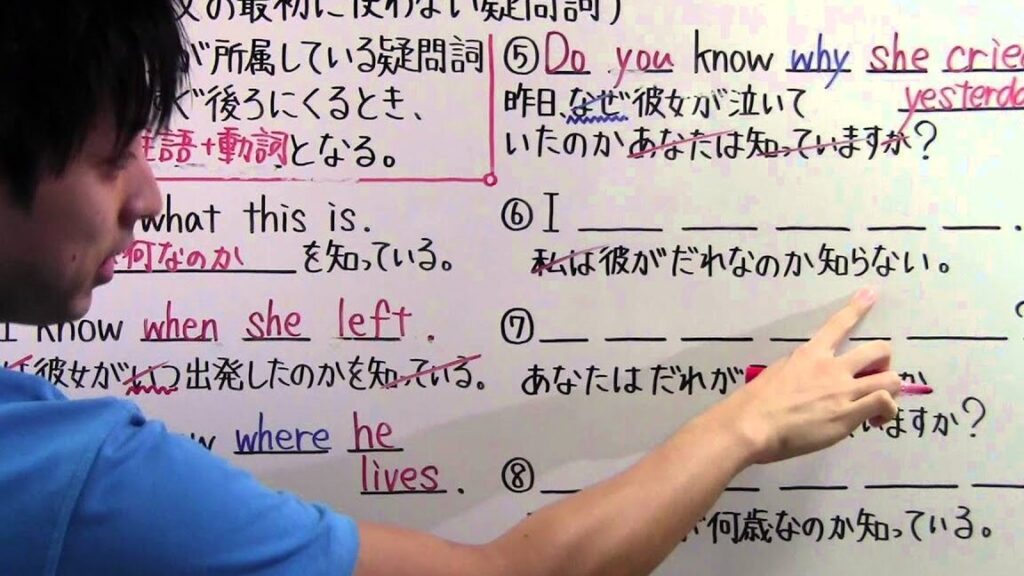 の最初に使わない疑問詞)
が所属している疑問詞
ぐ後ろにくるとき、
主語+動詞となる。
what this is.
何なのか を知っている。
I know when she left.
は彼女がいつ出発したのかを知っている。
where he
lives.
⑤Do you know why she cried
yesterda
昨日、なぜ彼女が泣いて
いたのかあなたは知っていますか?
⑥I
私は彼がだれなのか知らない。
⑦ ?
あなたはだれが か
いますか?
⑧
何歳なのか知っている。